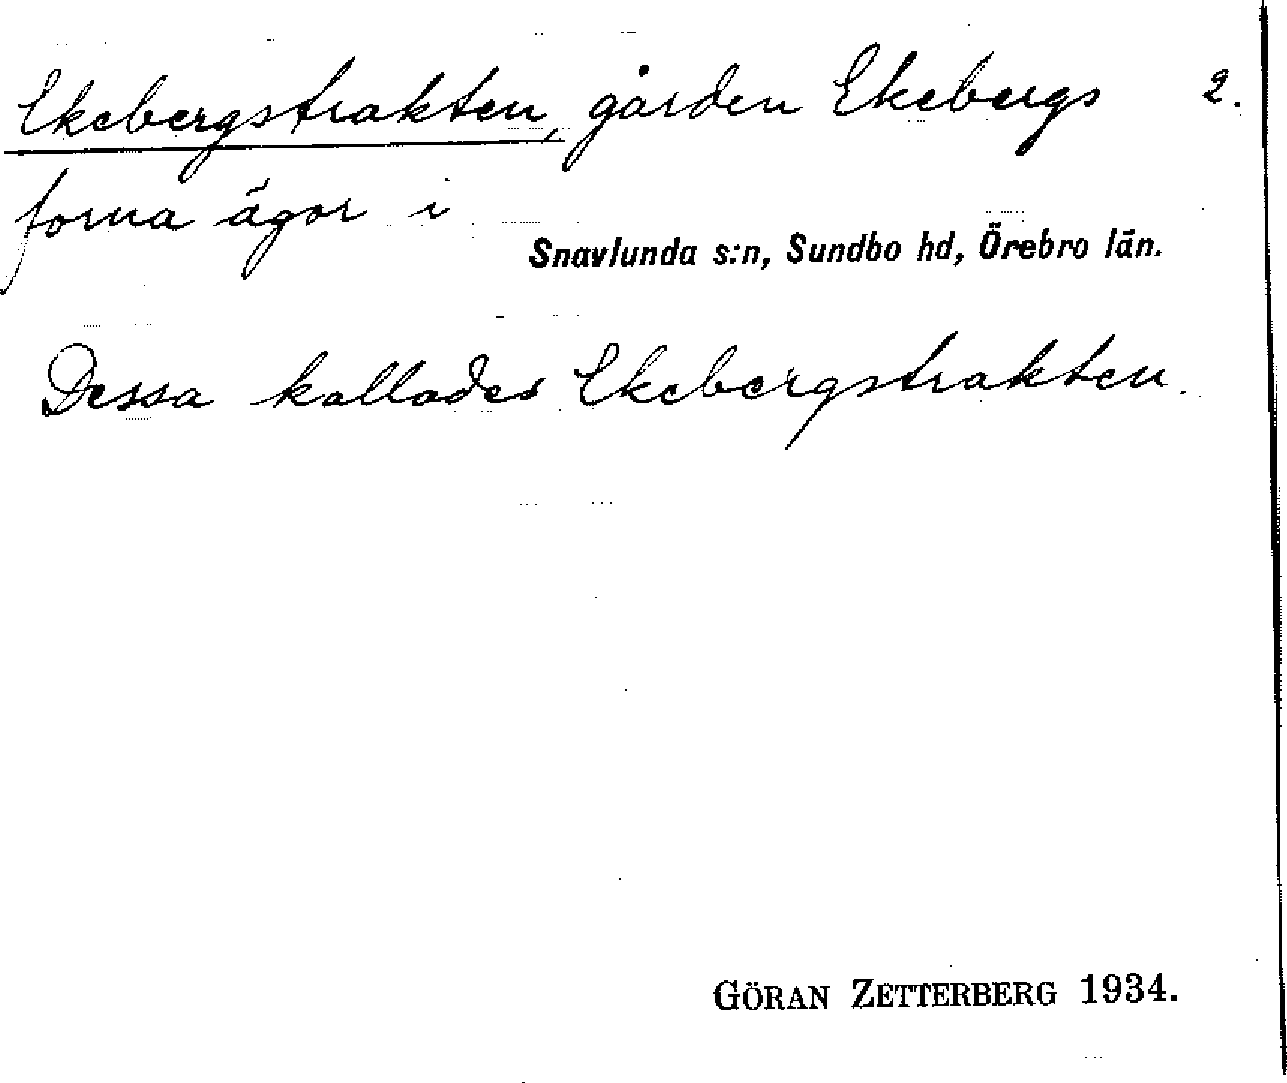 Ekebergstrakten, gården Ekebergs 2.
forna ägor i
Snavlunda s:n, Sundbo hd, Örebro län.
Dessa kallades Ekebergstrakten.
GÖRAN ZETTERBERG 1934.